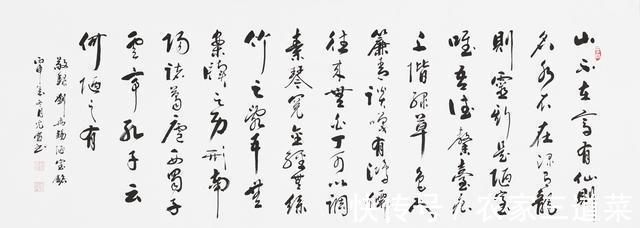 山不在高有仙則
名水不在深有龍
則靈斯是陋室
唯吾德馨苔痕
上階綠草色入
簾青談笑有鴻儒
往來無白丁可以調
素琴閱金經無絲
竹之亂耳無
案牘之勞形南
陽諸葛廬西蜀子
雲亭孔子云
何陋之有
敬錄劉禹錫陋室銘
丙申
快传号/农家三道菜